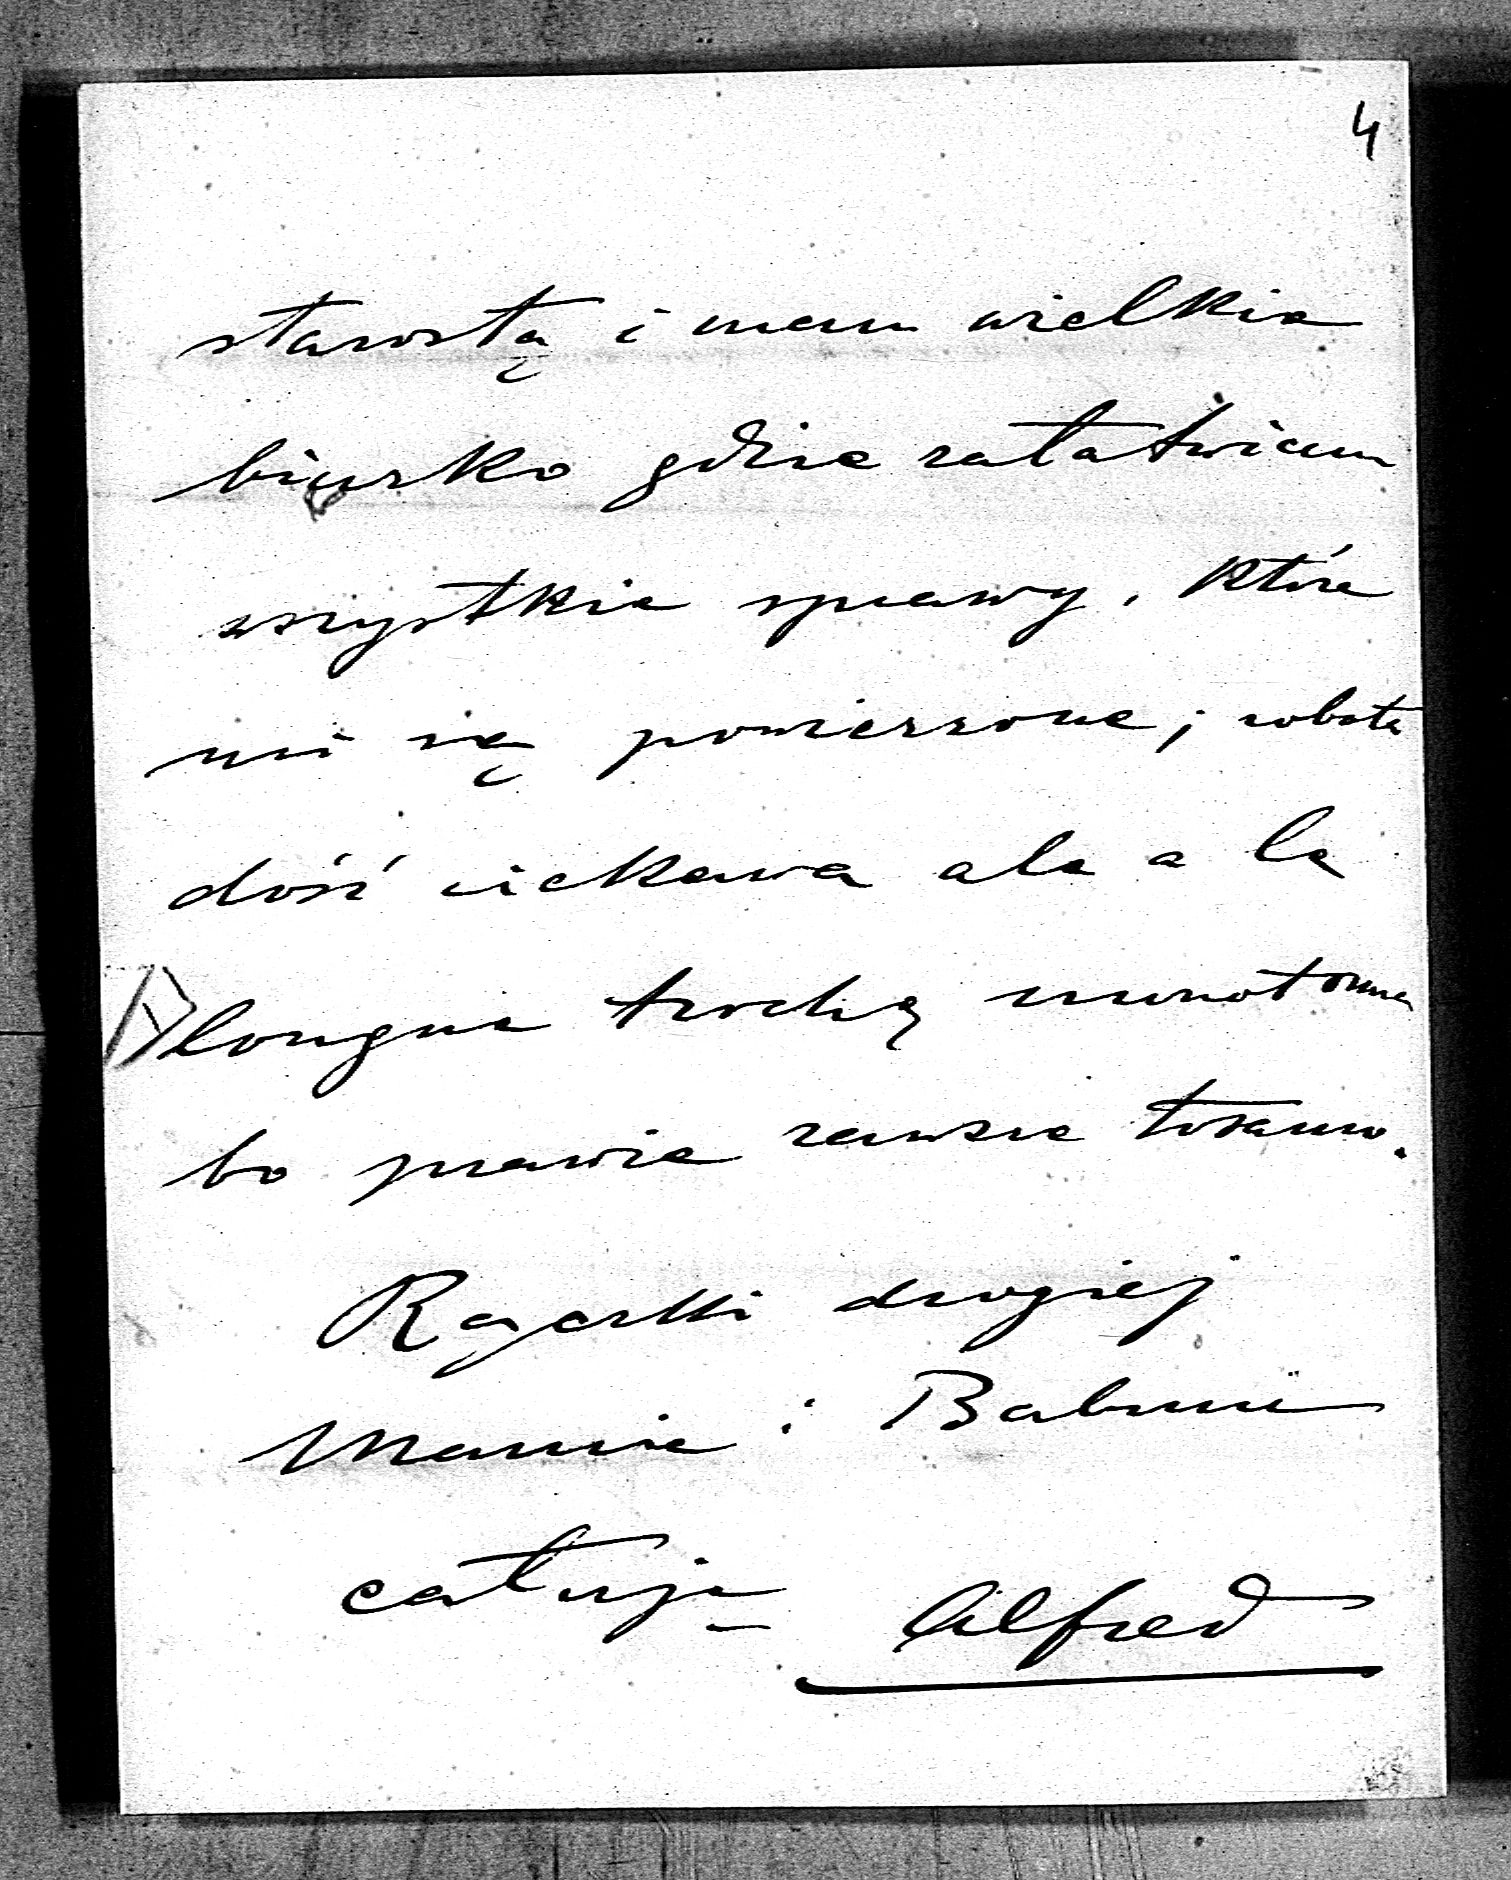 4
starostą i mam wielkie
biurko gdzie załatwiam
wszystkie sprawy, które
mi są powierzone; robota
dość ciekawa ale a la
longue trochę monotonna
bo prawie zawsze tosamo.
Rączki drogiej
Mamie i Babuni
całuję Alfred